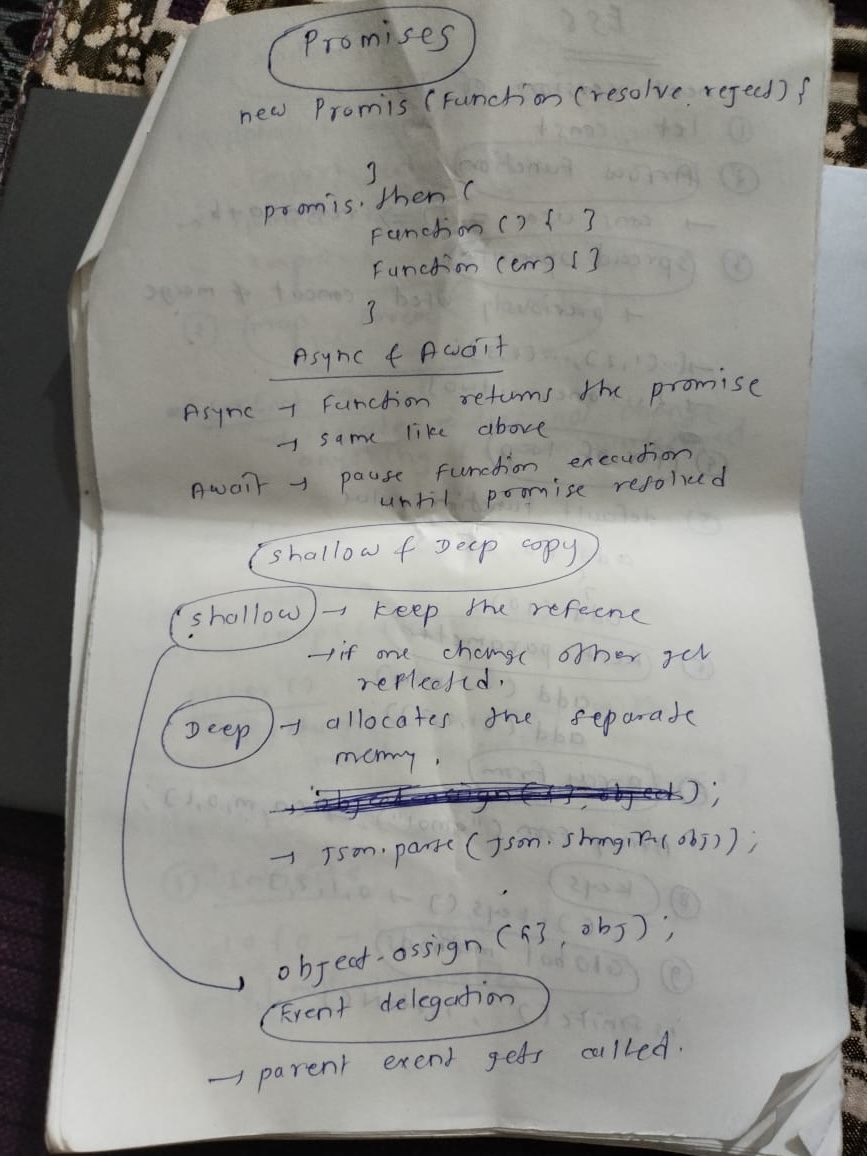 Promises
new Promis (Function (resolve, reject) {
}
promis. then (
Function () { }
Function (err) { }
}
Async & Await
Async → Function returns the promise
→ same like above
Await → pause function execution
until promise resolved
Shallow & Deep copy
Shallow → Keep the refecne
→ if one change other get
reflected.
Deep → allocates the separate
memry.
→ object-assign ({ }, object);
→ Json.parse (Json.stringify(obj));
object-assign ({}, obj);
Event delegation
→ parent event gets called.